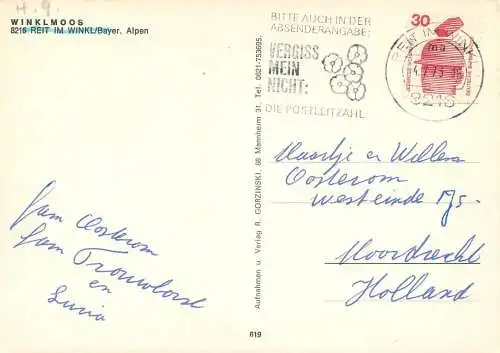 H.9.
WINKLMOOS
8216 REIT IM WINKL/Bayer. Alpen
BITTE AUCH IN DER
ABSENDERANGABE:
VERGISS
MEIN
NICHT:
DIE POSTLEITZAHL
30
REIT IM WINKL
8216
DEUTSCHE BUNDESPOST
Aufnahmen u. Verlag R. GORZINSKI, 68 Mannheim 31, Tel. 0621-753695.
619
Maartje en Willem
Oosterom
Westeinde
Moordrecht
Holland
fam Oosterom
fam Trouwborst
en
Lucia